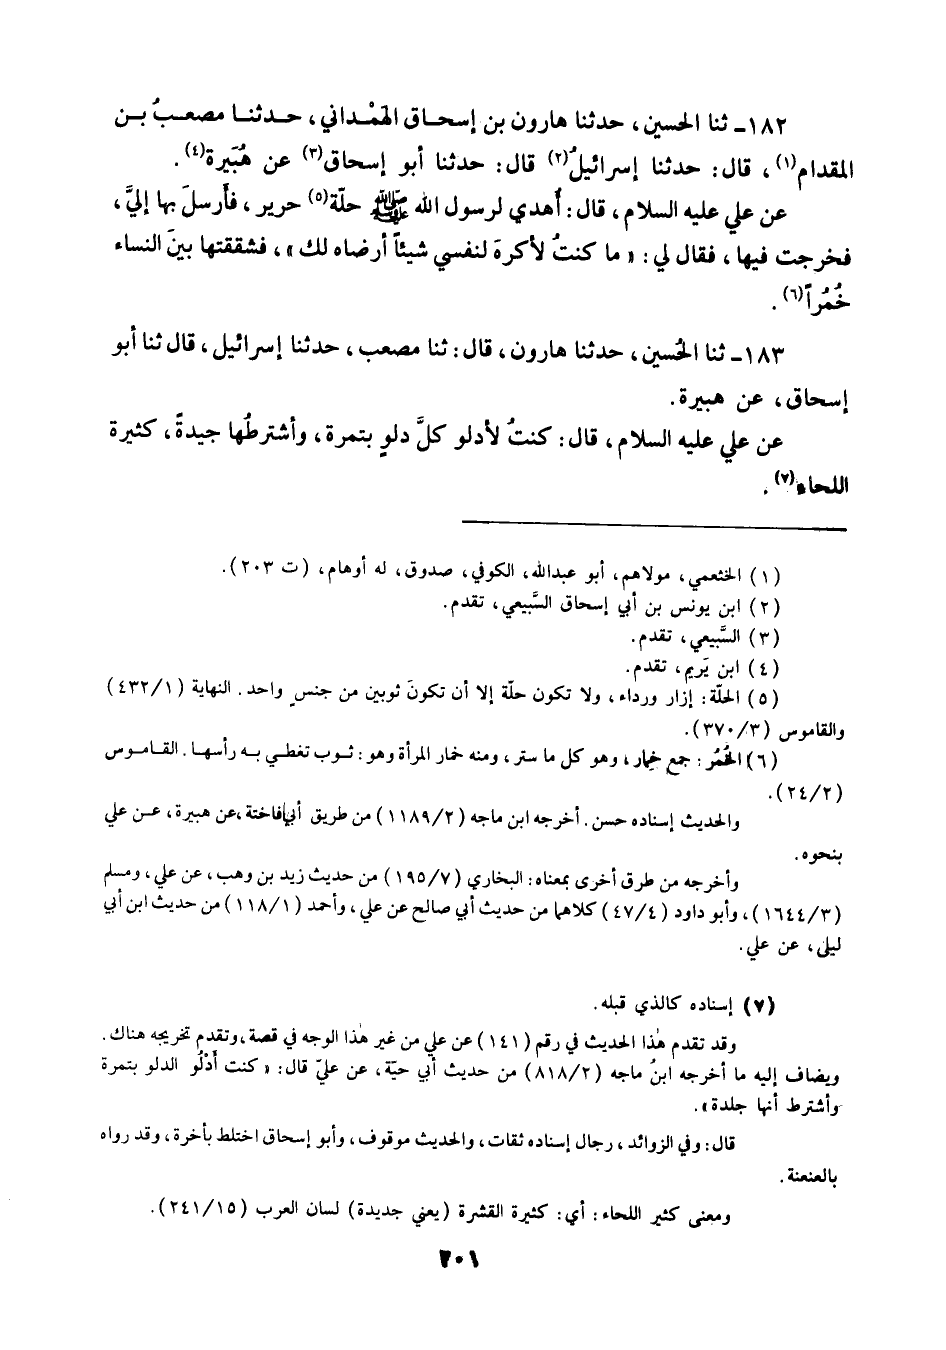 ١٨٢ـ ثنا الحسين، حدثنا هارون بن إسحـاق الهمْـداني، حـدثنـا مصعـبُ بـن
المقدام(١)، قال: حدثنا إسرائيلُ(٢) قال: حدثنا أبو إسحاق(٣) عن هُبَيرة(٤).
عن علي عليه السلام، قال: أُهدي لرسول الله ﷺ حلّة(٥) حرير، فأَرسلَ بها إليَّ،
فخرجت فيها، فقال لي: « ما كنتُ لأكرهَ لنفسي شيئاً أرضاه لك»، فشققتها بينَ النساء
خُمُراً(٦).
١٨٣ـ ثنا الحُسين، حدثنا هارون، قال: ثنا مصعب، حدثنا إسرائيل، قال ثنا أبو
إسحاق، عن هبيرة.
عن علي عليه السلام، قال: كنتُ لأدلو كلَّ دلوٍ بتمرة، وأشترطُها جيدةً، كثيرة
اللحاء(٧).
(١) الخثعمي، مولاهم، أبو عبدالله، الكوفي، صدوق، له أوهام، (ت ٢٠٣).
(٢) ابن يونس بن أبي إسحاق السَّبيعي، تقدم.
(٣) السَّبيعي، تقدم.
(٤) ابن يَريم، تقدم.
(٥) الحلّة: إزار ورداء، ولا تكون حلة إلا أن تكونَ ثوبين من جنسٍ واحد. النهاية (٤٣٢/١)
والقاموس (٣٧٠/٣).
(٦) الخُمُر: جمع خِمار، وهو كل ما ستر، ومنه خمار المرأة وهو: ثـوب تغطـي بـه رأسهـا. القـامـوس
(٢٤/٢).
والحديث إسناده حسن. أخرجه ابن ماجه (١١٨٩/٢) من طريق أبي فاختة، عن هبيرة، عـن علي
بنحوه.
وأخرجه من طرق أخرى بمعناه: البخاري (١٩٥/٧) من حديث زيد بن وهب، عن علي، ومسلم
(١٦٤٤/٣)، وأبو داود (٤٧/٤) كلاهما من حديث أبي صالح عن علي، وأحمد (١١٨/١) من حديث ابن أبي
ليلى، عن علي.
(٧) إسناده كالذي قبله.
وقد تقدم هٰذا الحديث في رقم (١٤١) عن علي من غير هٰذا الوجه في قصة، وتقدم تخريجه هناك.
ويضاف إليه ما أخرجه ابنُ ماجه (٨١٨/٢) من حديث أبي حيّة، عن عليّ قال: « كنت أَدْلُو الدلو بتمرة
وأشترط أنها جلدة».
قال: وفي الزوائد، رجال إسناده ثقات، والحديث موقوف، وأبو إسحاق اختلط بأخرة، وقد رواه
بالعنعنة.
ومعنى كثير اللحاء: أي: كثيرة القشرة (يعني جديدة) لسان العرب (٢٤١/١٥).
٢٠١